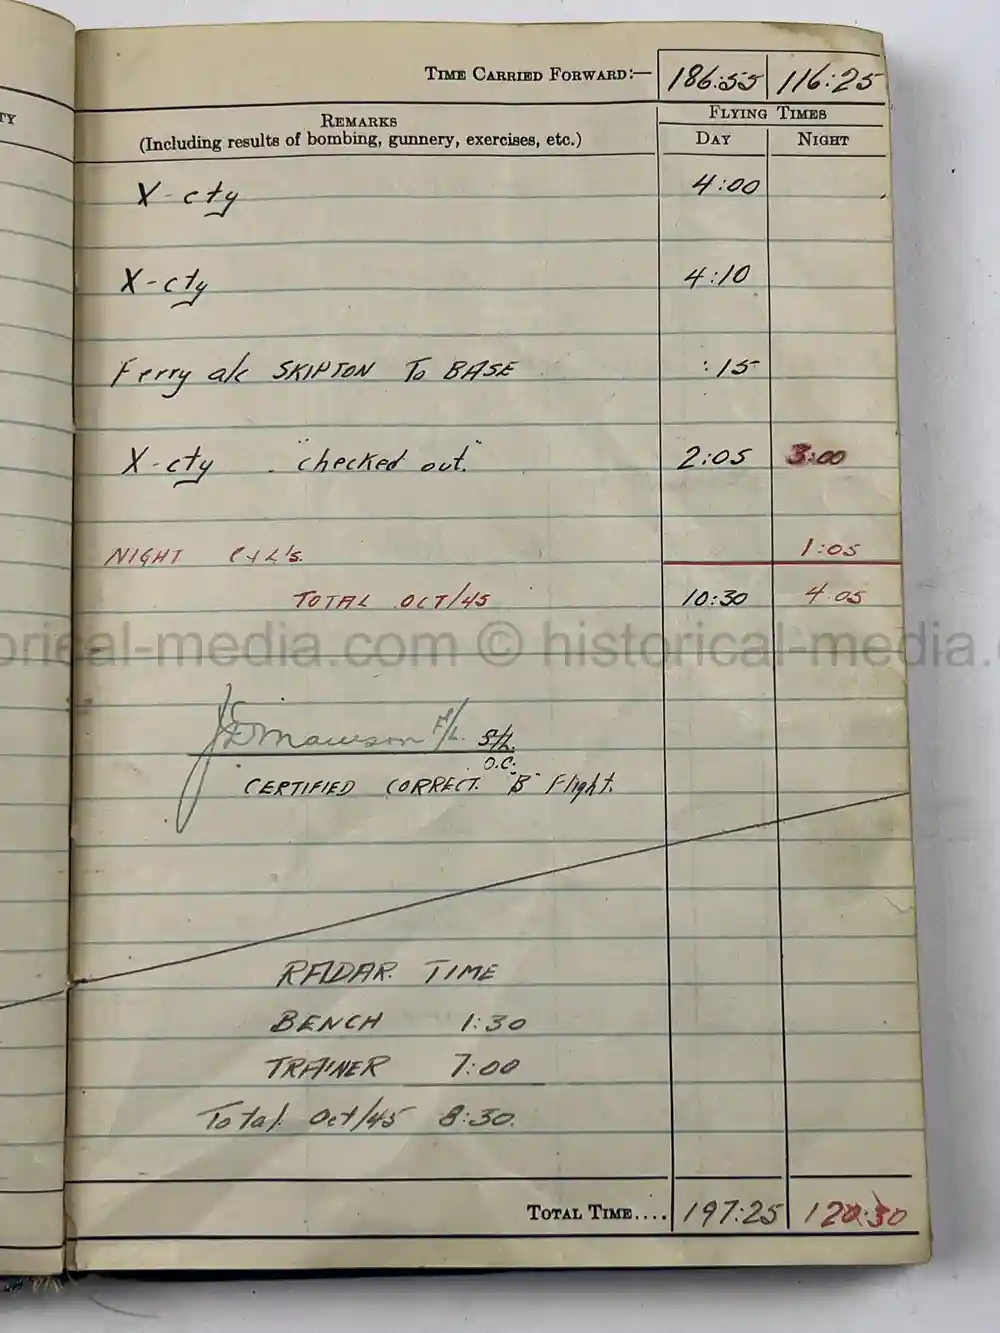 TY
TIME CARRIED FORWARD:— 186:55 116:25
REMARKS
(Including results of bombing, gunnery, exercises, etc.)
FLYING TIMES
DAY NIGHT
X-cty 4:00
X-cty 4:10
Ferry a/c SKIPTON To BASE :15
X-cty - "checked out." 2:05 3:00
NIGHT C+L's. 1:05
TOTAL OCT/45 10:30 4:05
historical-media.com © historical-media.
Mawson F/L. S/L.
O.C.
CERTIFIED CORRECT. "B" Flight.
RADAR TIME
BENCH 1:30
TRAINER 7:00
Total Oct/45 8:30.
TOTAL TIME.... 197:25 120:30